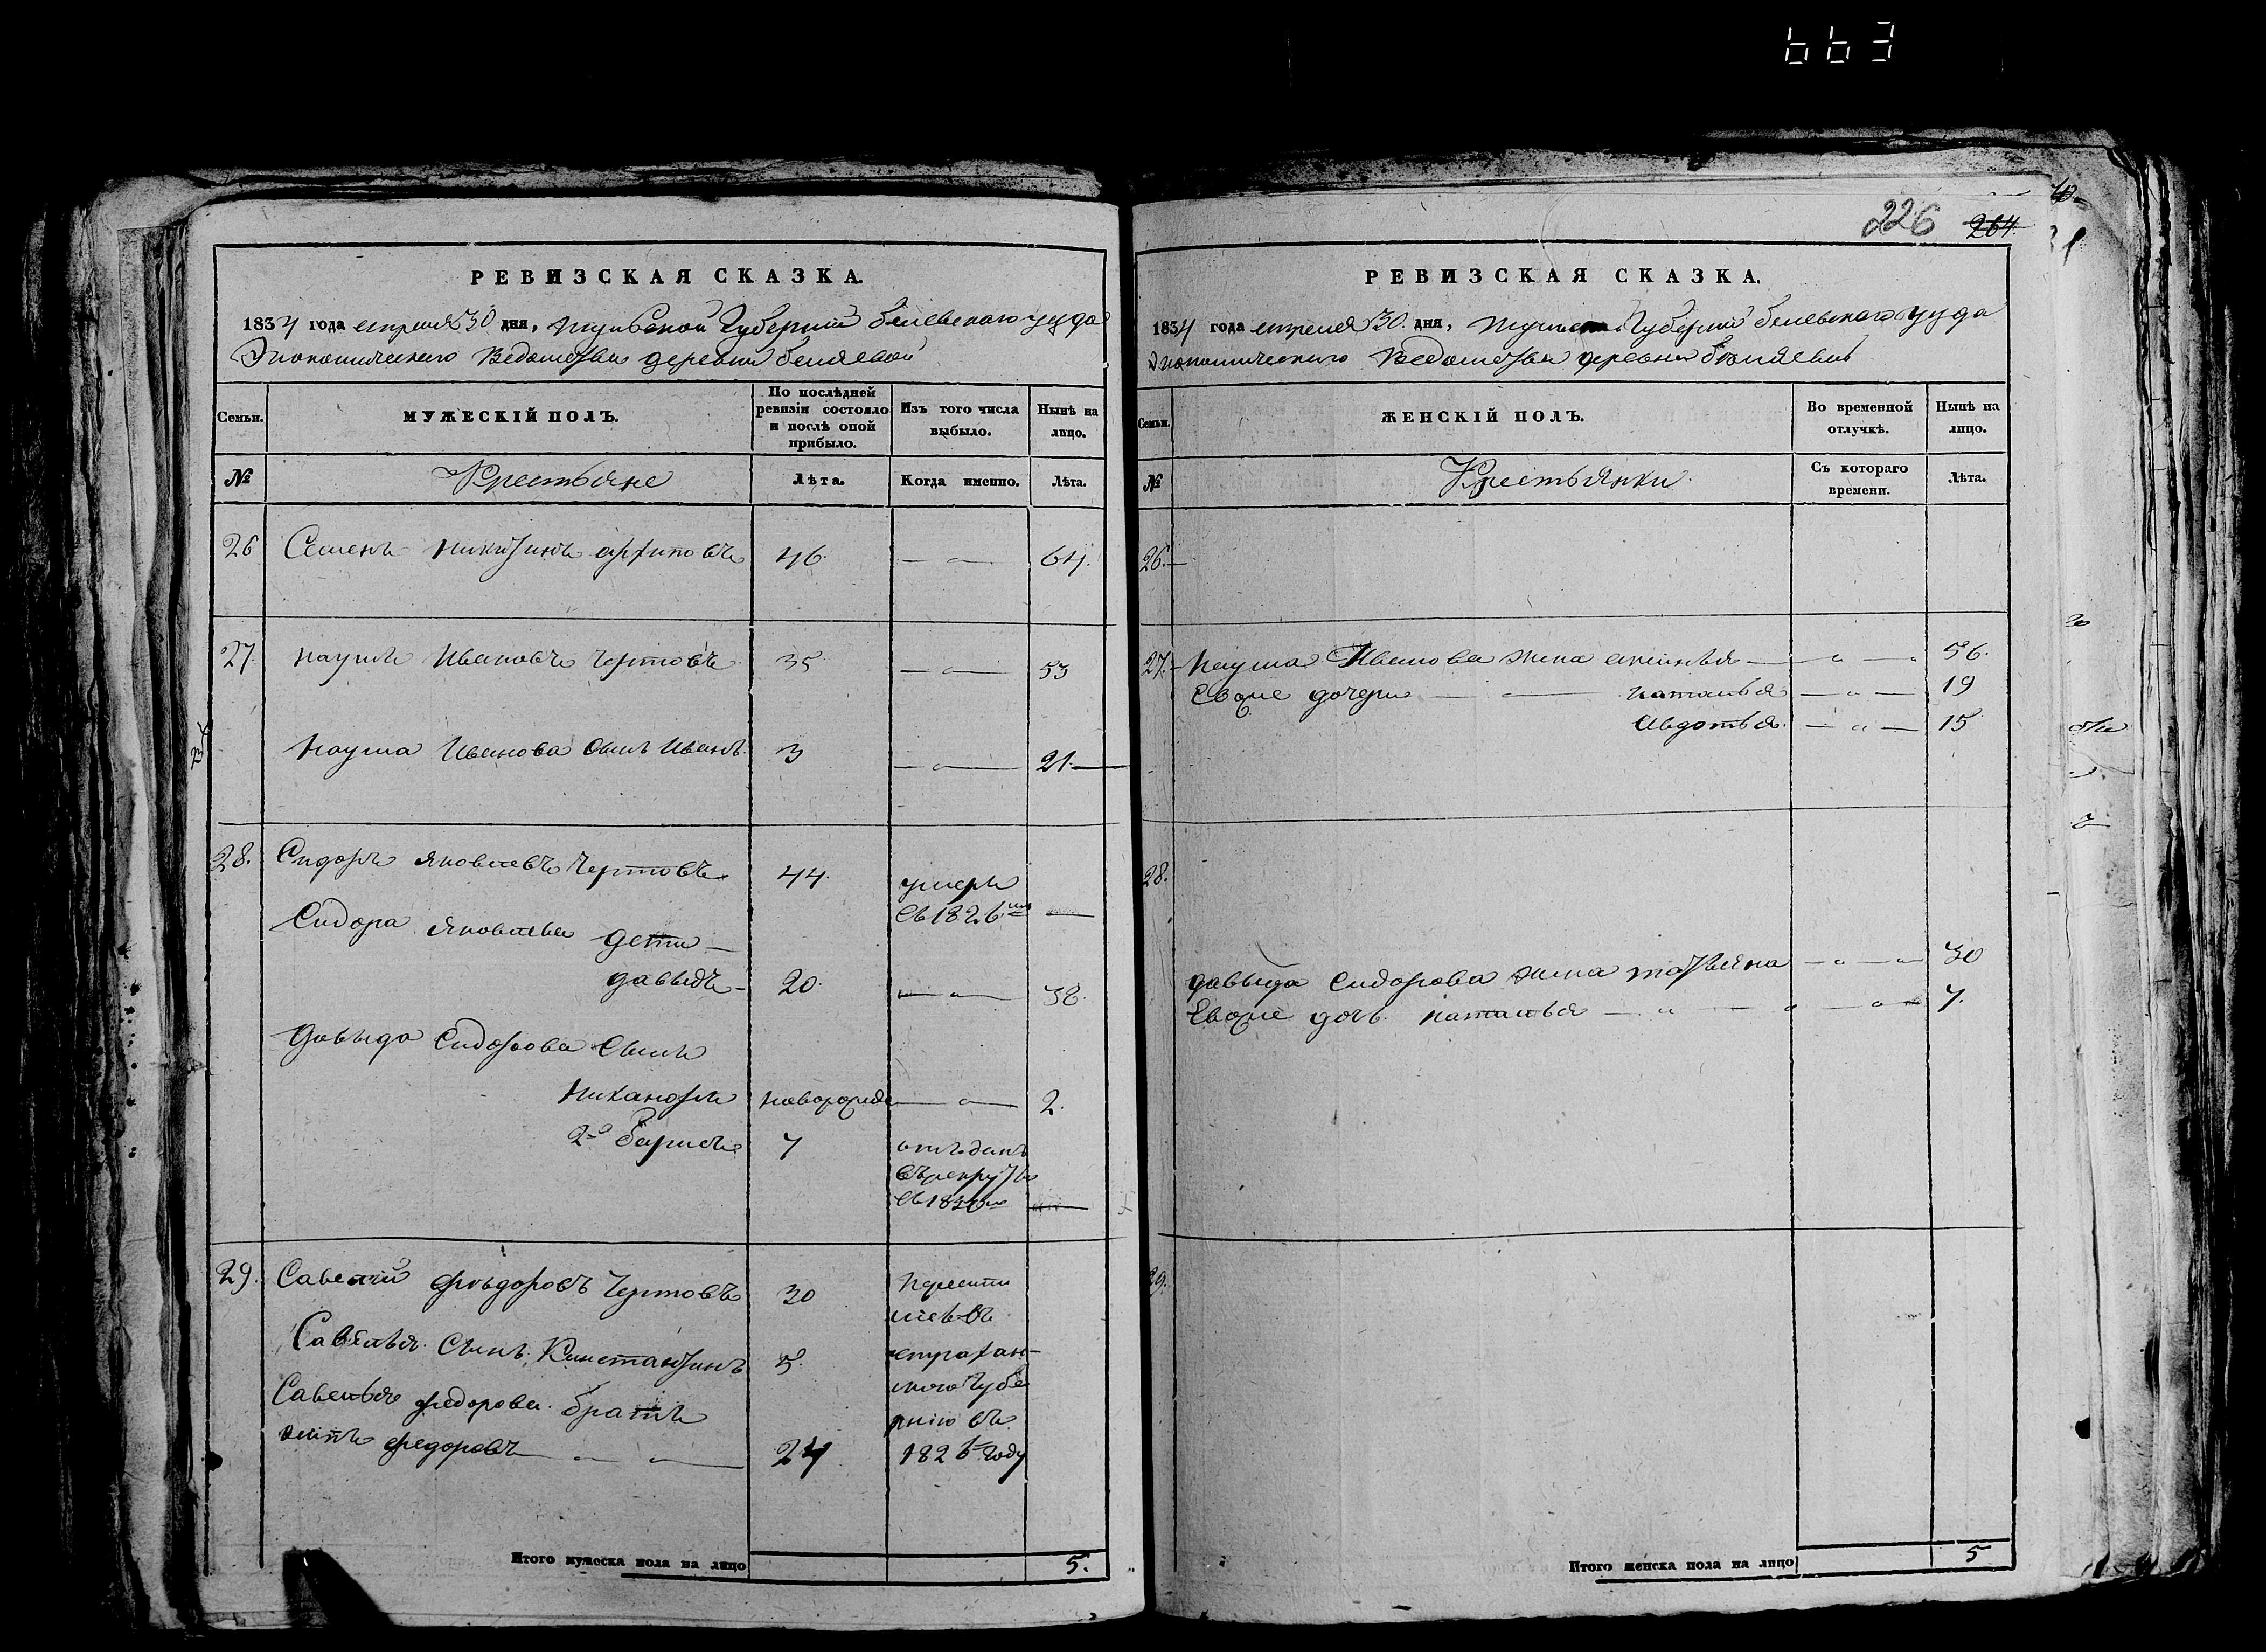 663
226 264
РЕВИЗСКАЯ СКАЗКА.
1834 года апреля 30 дня, Тульской Губернии белевского уезда
Экономического Ведомства деревни беляевой
Семьи.
МУЖЕСКІЙ ПОЛЪ.
По послѣдней ревизіи состояло и послѣ оной прибыло.
Изъ того числа выбыло.
Нынѣ на лицо.
№
Крестьяне
Лѣта.
Когда именно.
Лѣта.
26 Семенъ никитинъ архиповъ 46. — „ — 64.
27. наумъ Ивановъ Чертовъ 35 — „ — 53
наума Иванова сынъ Иванъ 3 — „ — 21.
28. Сидоръ яковлевъ Чертовъ 44. умеръ
въ 1826мъ —
Сидора яковлева дети —
давыдъ — 20. — „ — 38.
давыда Сидорова Сынъ
Никаноръ новорожде — „ — 2.
2й барисъ 7 отъданъ
въ рекруты
въ 1830м —
29. Савелий фѣдоровъ Чертовъ 30
Савелья Сынъ Константинъ 5.
Савелья федорова братъ
федоровъ — „ — 24
въ
1826 году
Итого мужеска пола на лицо 5.
РЕВИЗСКАЯ СКАЗКА.
1834 года апреля 30. дня, Тульской Губернии белевского уезда
Экономического Ведомства деревни беляевой
Семьи.
ЖЕНСКІЙ ПОЛЪ.
Во временной отлучкѣ.
Нынѣ на лицо.
№
Крестьянки.
Съ котораго времени.
Лѣта.
26. —
27. наума Иванова жена аксинья — „ — 56.
Евоже дочери — наталья — „ — 19
Авдотья — „ — 15
28.
давыда Сидорова жена татьяна — „ — 30
Евоже дочь наталья — „ — „ — 7.
29.
Итого женска пола на лицо 5